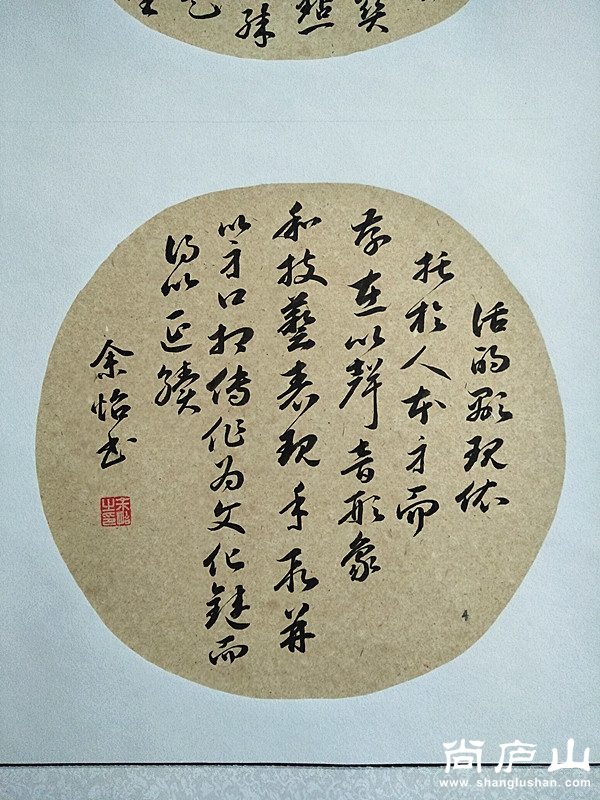 活的顯現依
托於人本身而
存在以聲音形象
和技藝表現手段并
以身口相傳作为文化鏈而
得以延續
余怡书
余怡之印
尚庐山
www.shanglushan.com